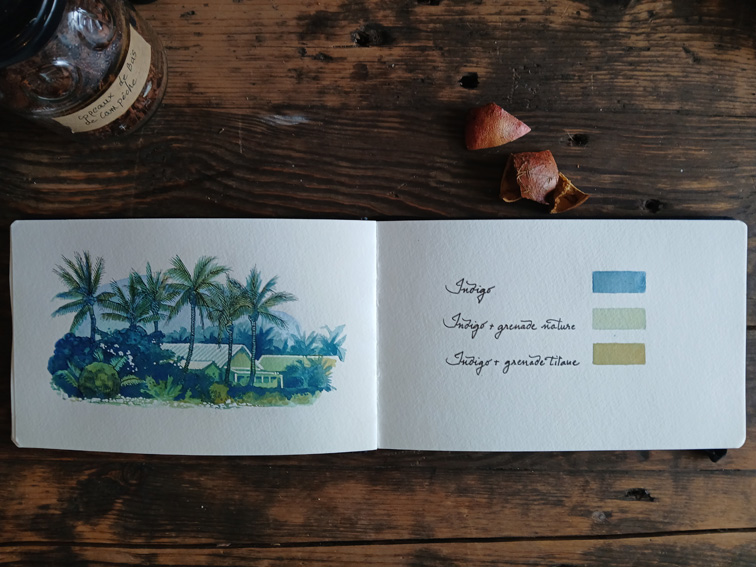 Copeaux de Bois
de Campêche
Indigo
Indigo + grenade nature
Indigo + grenade titane